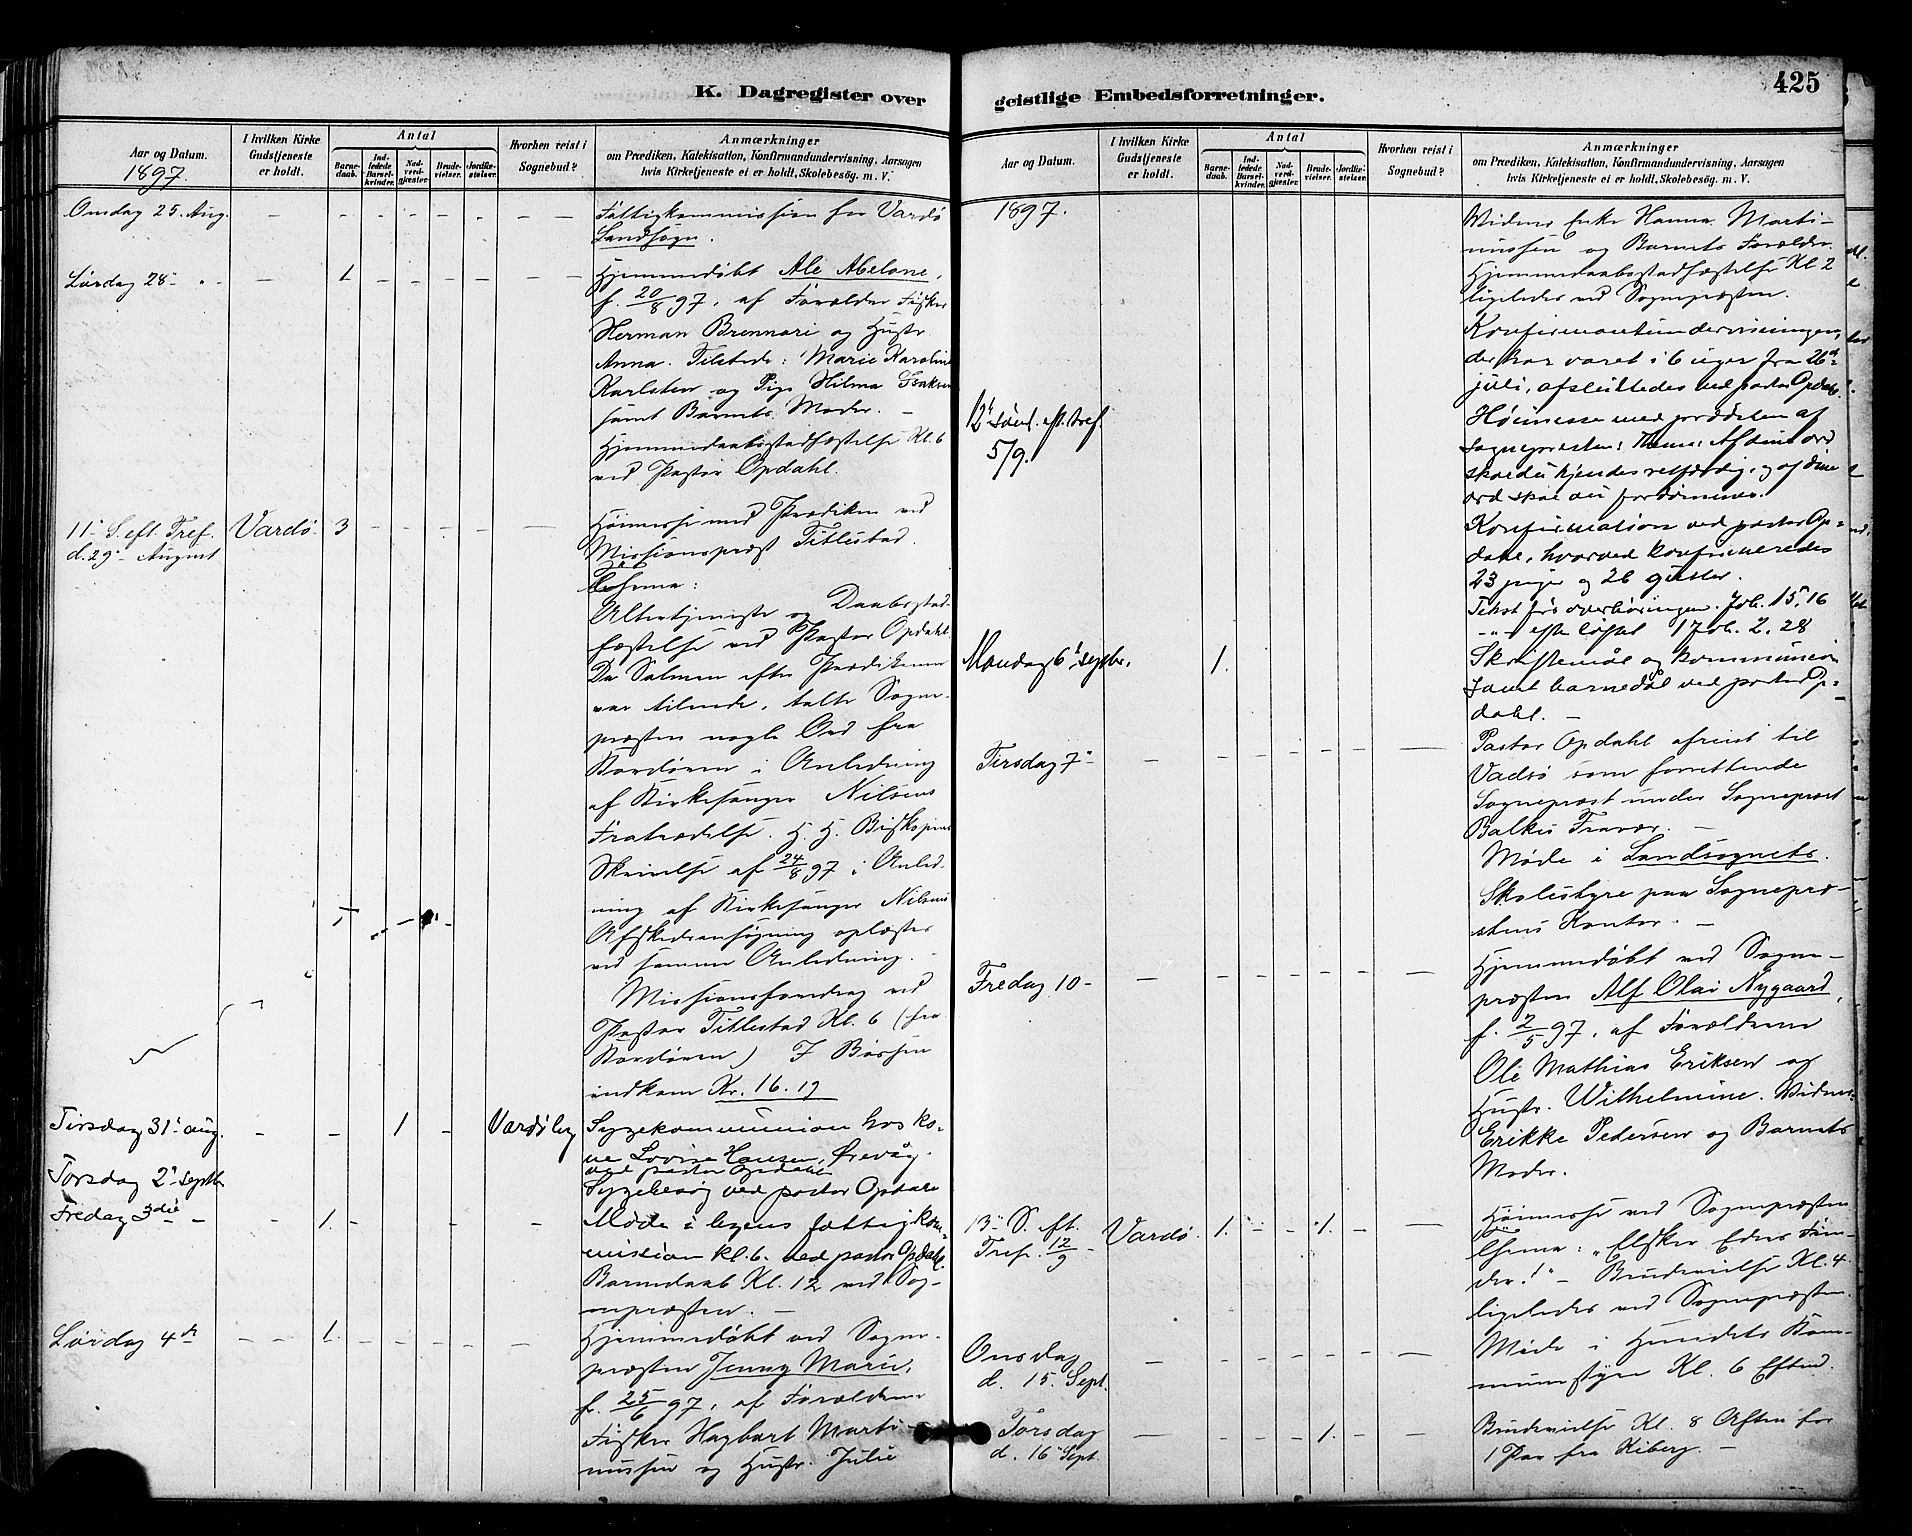 425
K. Dagregister over
geistlige Embedsforretninger.
Aar og Datum.
1897.
I hvilken Kirke Gudstjeneste er holdt.
Antal
Barnedaab.
Indledede Barselkvinder.
Nadverdgjester.
Brudevielser.
Jordfæstelser.
Hvorhen reist i Sognebud?
Anmærkninger
om Prædiken, Katekisation, Konfirmandundervisning, Aarsagen
hvis Kirketjeneste ei er holdt, Skolebesøg. m. V.
Onsdag 25. Aug. - - - - - - - Fattigkommission for Vardø
Landsogn.
Lørdag 28 - " - - 1 - - - - - Hjemmedøbt Ale Abelone,
f. 20/8 97, af Forældre Fisker
Herman Brennari og Hustr
Anna. Tilstede: Marie Karoline
Karlsten og Pige Hilma Isaksen
samt Barnets Moder. -
Hjemmedaabsstadfæstelse Kl. 6
ved Pastor Opdahl.
11 - S. eft. Tref. Vardø 3 - - - - - Høimesse med Prædiken ved
d. 29 - August Missionsprest Titlestad.
Thema:
Altertjeneste og Daabsstad-
fæstelse ved Pastor Opdahl
Da Salmen efter Prædikenen
var tilende, talte Sogne-
præsten nogle Ord fra
Kordøren i Anledning
af Kirkesanger Nilsens
Fratrædelse. H. H. Biskopens
Skrivelse af 24/8 97 i Anled-
ning af Kirkesanger Nilsens
Afskedsansøgning oplæstes
ved samme Anledning. -
Missionsforedrag ved
Pastor Titlestad Kl. 6 (fra
Kordøren) I Bøssen
indkom Kr. 16.19
Tirsdag 31' aug. - - 1 - - Vardø by Sygekommunion hos ko-
ne Lovise Hansen, Ørevåg.
ved pastor Opdahl
Torsdag 2' septbr Sygebesøg ved pastor Opdahl
Fredag 3die - - 1. - - - Møde i byens fattigkom-
mission kl. 6. ved pastor Opdahl.
Barnedaab Kl. 12 ved Sog-
nepræsten. -
Lørdag 4de - - 1. - - - - Hjemmedøbt ved Sogne-
præsten Jenny Marie,
f. 25/6 97, af Forældrene
Fisker Hagbart Marti-
nussen og Hustr. Julie
Aar og Datum.
I hvilken Kirke Gudstjeneste er holdt.
Antal
Barnedaab.
Indledede Barselkvinder.
Nadverdgjester.
Brudevielser.
Jordfæstelser.
Hvorhen reist i Sognebud?
Anmærkninger
om Prædiken, Katekisation, Konfirmandundervisning, Aarsagen
hvis Kirketjeneste ei er holdt, Skolebesøg. m. V.
1897. Vidner Enke Hanna Marti-
nussen og Barnets Forældre.
Hjemmedaabsstadfæstelse Kl. 2
ligeledes ved Sognepræsten.
Konfirmantundervisningen,
der har varet i 6 uger fra 26de
juli, afsluttedes ved pastor Opdahl.
12' sønd. eft. tref. Høimesse med prædiken af
5/9. sognepresten: Thema: Af dine ord
skal du kjendes retfærdig, og af dine
ord skal du fordømmes.
Konfirmation ved pastor Op-
dahl, hvorved konfirmeredes
23 piger og 26 gutter.
Tekst før overhøringen. Joh. 15,16
- " - efter løftet 1 Joh. 2. 28
Mandag 6' septbr. 1. Skriftemål og kommunion
samt barnedåb ved pastor Op-
dahl. -
Tirsdag 7 - - - - - - - - Pastor Opdahl afreist til
Vadsø som forrettende
Sognepræst under Sognepræst
Balkes Fravær. -
Møde i Landsognets
Skolestyre paa Sognepræ-
stens Kontor. -
Fredag 10 - - - - - - - - Hjemmedøbt ved Sogne-
præsten Alf Olai Nygaard,
f. 2/5 97, af Forældrene
Ole Mathias Eriksen og
Hustr. Wilhelmine. Vidner
Erikke Pedersen og Barnets
Moder.
13 - S. eft. Vardø. 1. - - 1. - - Høimesse ved Sognepræsten
Tref. 12/9 - Thema: "Elsker Eders Fien-
der!" - Brudevielse Kl. 4
ligeledes ved Sognepræsten.
Onsdag - - - - - - - Møde i Herredets Kom-
d. 15. Sept. munestyre Kl. 6 Efterm.
Torsdag - - - - 1. - - Brudevielse Kl. 8 Aften for
d. 16 - Sept. 1 Par fra Kiberg. -